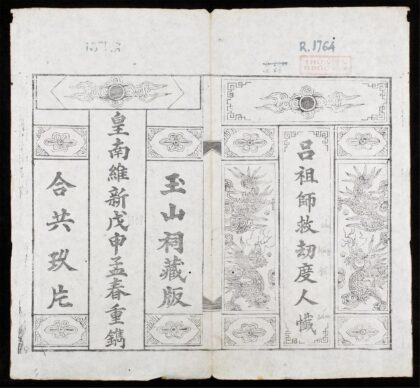 R.1764
呂祖師救劫度人懺
玉山祠藏版
皇南維新戊申孟春重鐫
合共玖片